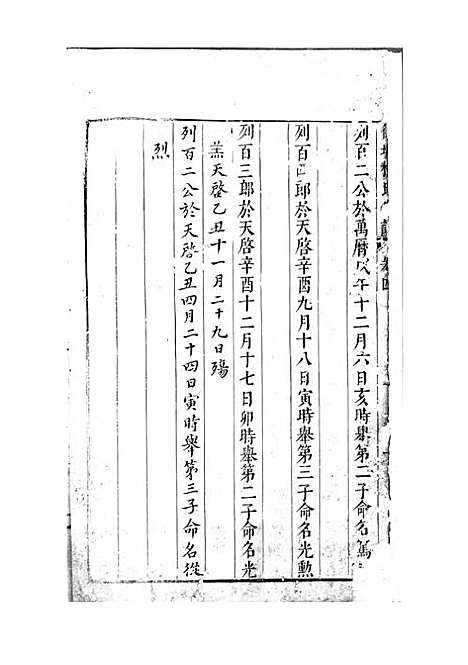 列百二公於萬曆戊午十二月六日亥時舉第二子命名篤
列百四郎於天啓辛酉九月十八日寅時舉第三子命名光勲
列百三郎於天啓辛酉十二月十七日卯時舉第二子命名光
羔天啓乙丑十一月二十九日殤
列百二公於天啓乙丑四月二十四日寅時舉第三子命名從
烈